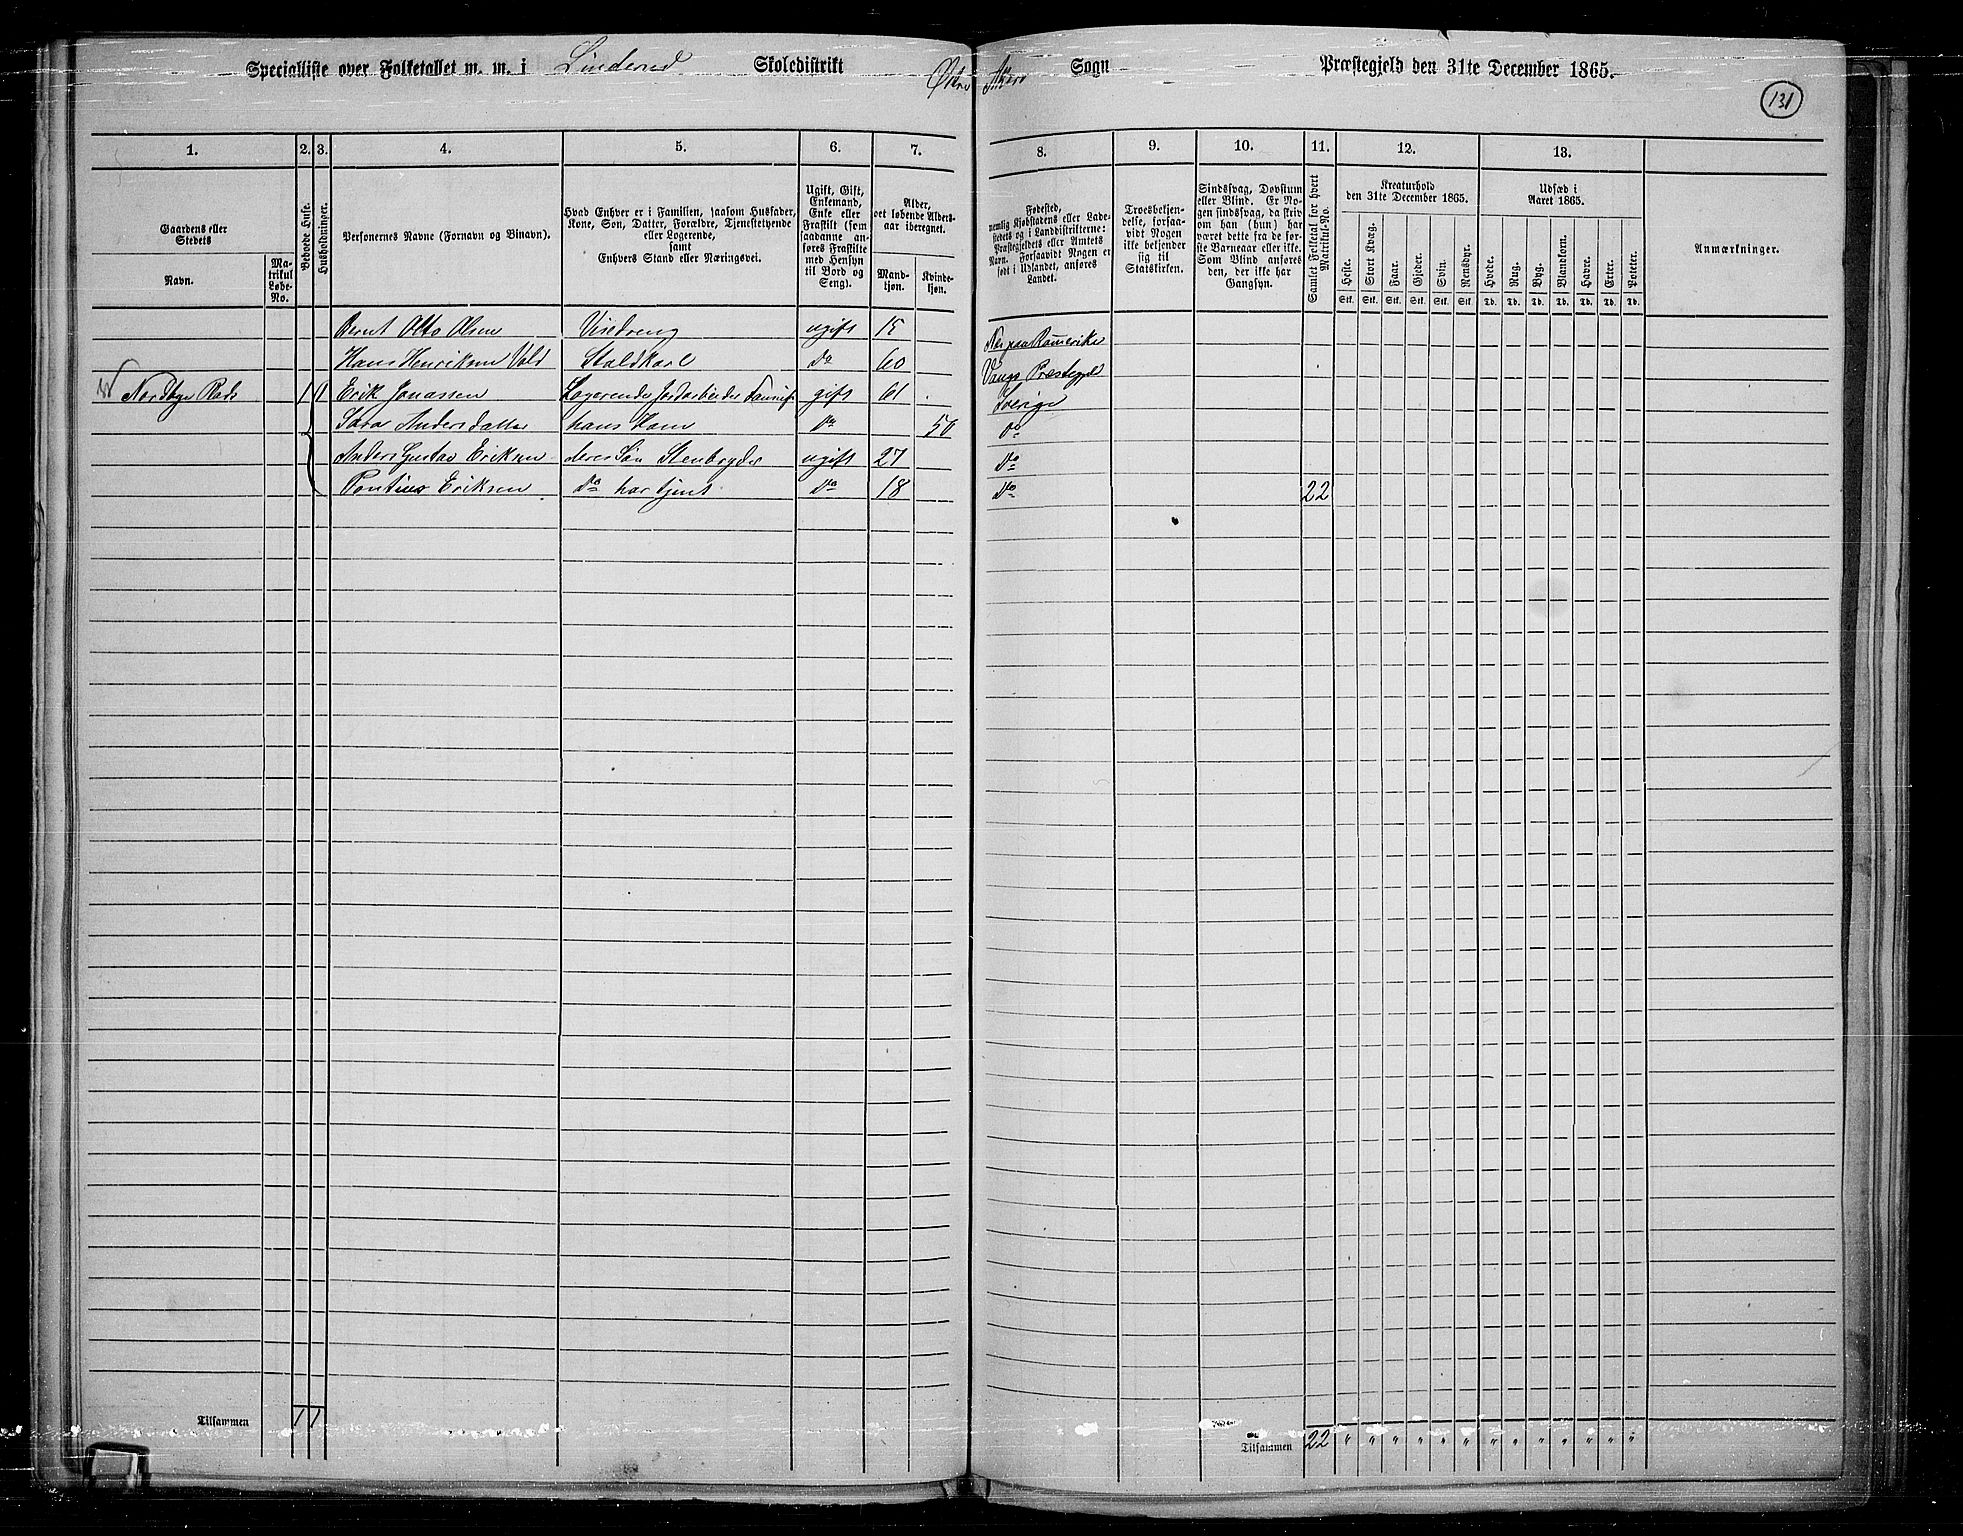 Specialliste over Folketallet m. m. i Linderud Skoledistrikt Østre Akers Sogn Præstegjeld den 31te December 1865.
131
1. 2. 3. 4. 5. 6. 7. 8. 9. 10. 11. 12. 13.
Gaardens eller Stedets
Navn.
Matrikul Løbe-No.
Beboede Huse.
Husholdninger.
Personernes Navne (Fornavn og Binavn).
Hvad Enhver er i Familien, saasom Husfader, Kone, Søn, Datter, Forældre, Tjenestetyende eller Logerende, samt Enhvers Stand eller Næringsvei.
Ugift, Gift, Enkemand, Enke eller Fraskilt (som saadanne anføres Fraskilte med Hensyn til Bord og Seng).
Alder, det løbende Alders-aar iberegnet.
Mand-kjøn.
Kvinde-kjøn.
Fødested, nemlig Kjøbstadens eller Ladestedets og i Landdistrikterne: Præstegjeldets eller Amtets Navn. Forsaavidt Nogen er født i Udlandet, anføres Landet.
Troesbekjendelse, forsaavidt Nogen ikke bekjender sig til Statskirken.
Sindssvag, Døvstum eller Blind. Er Nogen sindssvag, da skriv om han (hun) har været dette fra de første Barneaar eller ikke. Som Blind anføres den, der ikke har Gangsyn.
Samlet Folketal for hvert Matrikul-No.
Kreaturhold den 31te December 1865.
Heste. Stort Kvæg. Faar. Gjeder. Svin. Rensdyr.
Stk. Stk. Stk. Stk. Stk. Stk.
Udsæd i Aaret 1865.
Hvede. Rug. Byg. Blandkorn. Havre. Erter. Poteter.
Td. Td. Td. Td. Td. Td. Td.
Anmærkninger.
Bernt Otto Olsen Visedreng ugift 15 Næs paa Romerike
Hans Henriksen Vold Staldkarl do 60 Vangs Præstegjeld
Nordbye 1 1 Erik Jonassen Logerende Jordarbeider gift 61 Sverige
Sara Andersdatter hans Kone do 50 do
Anders Gustav Eriksen deres Søn Stenbryder ugift 27 do
Pontius Eriksen do har tjent do 18 do 22
Tilsammen 1 1
Tilsammen 22 " " " " " " " " " " " " "